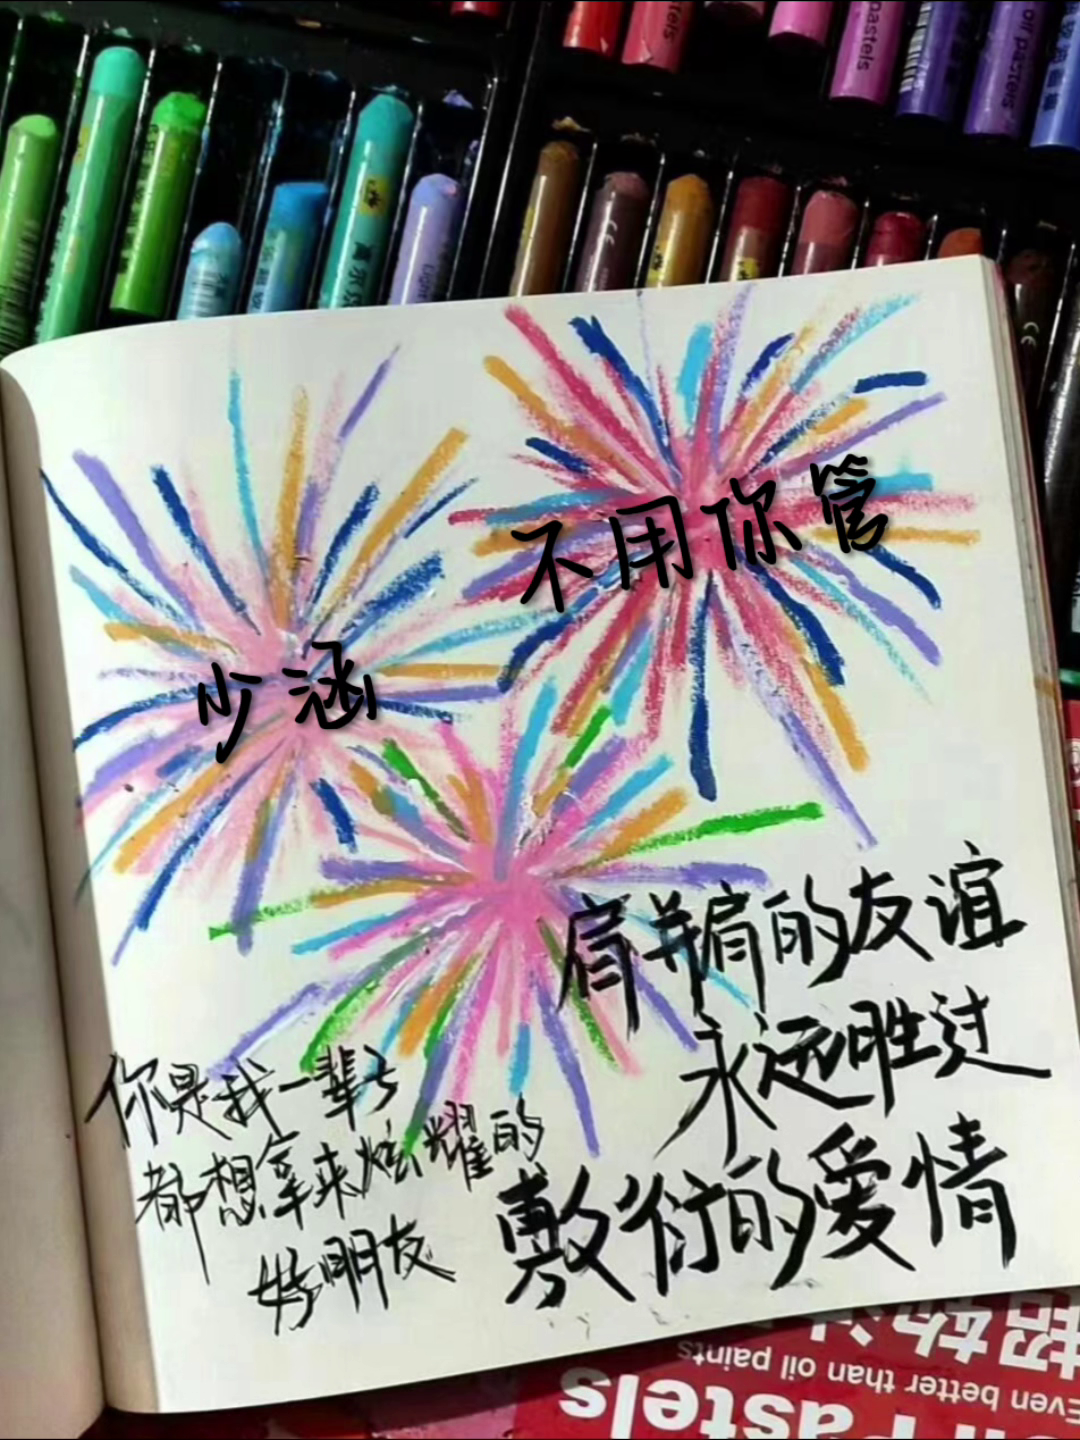 不用你管
少涵
肩并肩的友谊
永远胜过
敷衍的爱情
你是我一辈子
都想拿来炫耀的
好朋友
pastels
oil pastels
Even better than oil paints